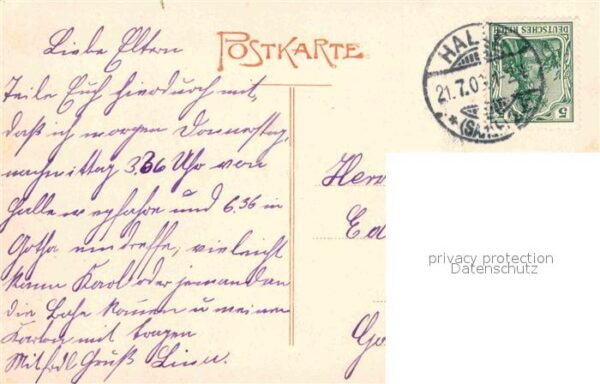 Liebe Eltern
POSTKARTE
Teile Euch hierdurch mit,
daß ich morgen Donnerstag,
nachmittag 3.36 Uhr von
Halle w egfahre und 6.36 in
Gotha eintreffe, vielleicht
kann Karl oder jemand an
die Bahn kommen u meinen
Karton mit tragen
Mit frdl Gruß Linu.
HALLE
21.7.0
(SAALE)
DEUTSCHES REICH
5
Herr
Ed
Go
privacy protection
Datenschutz